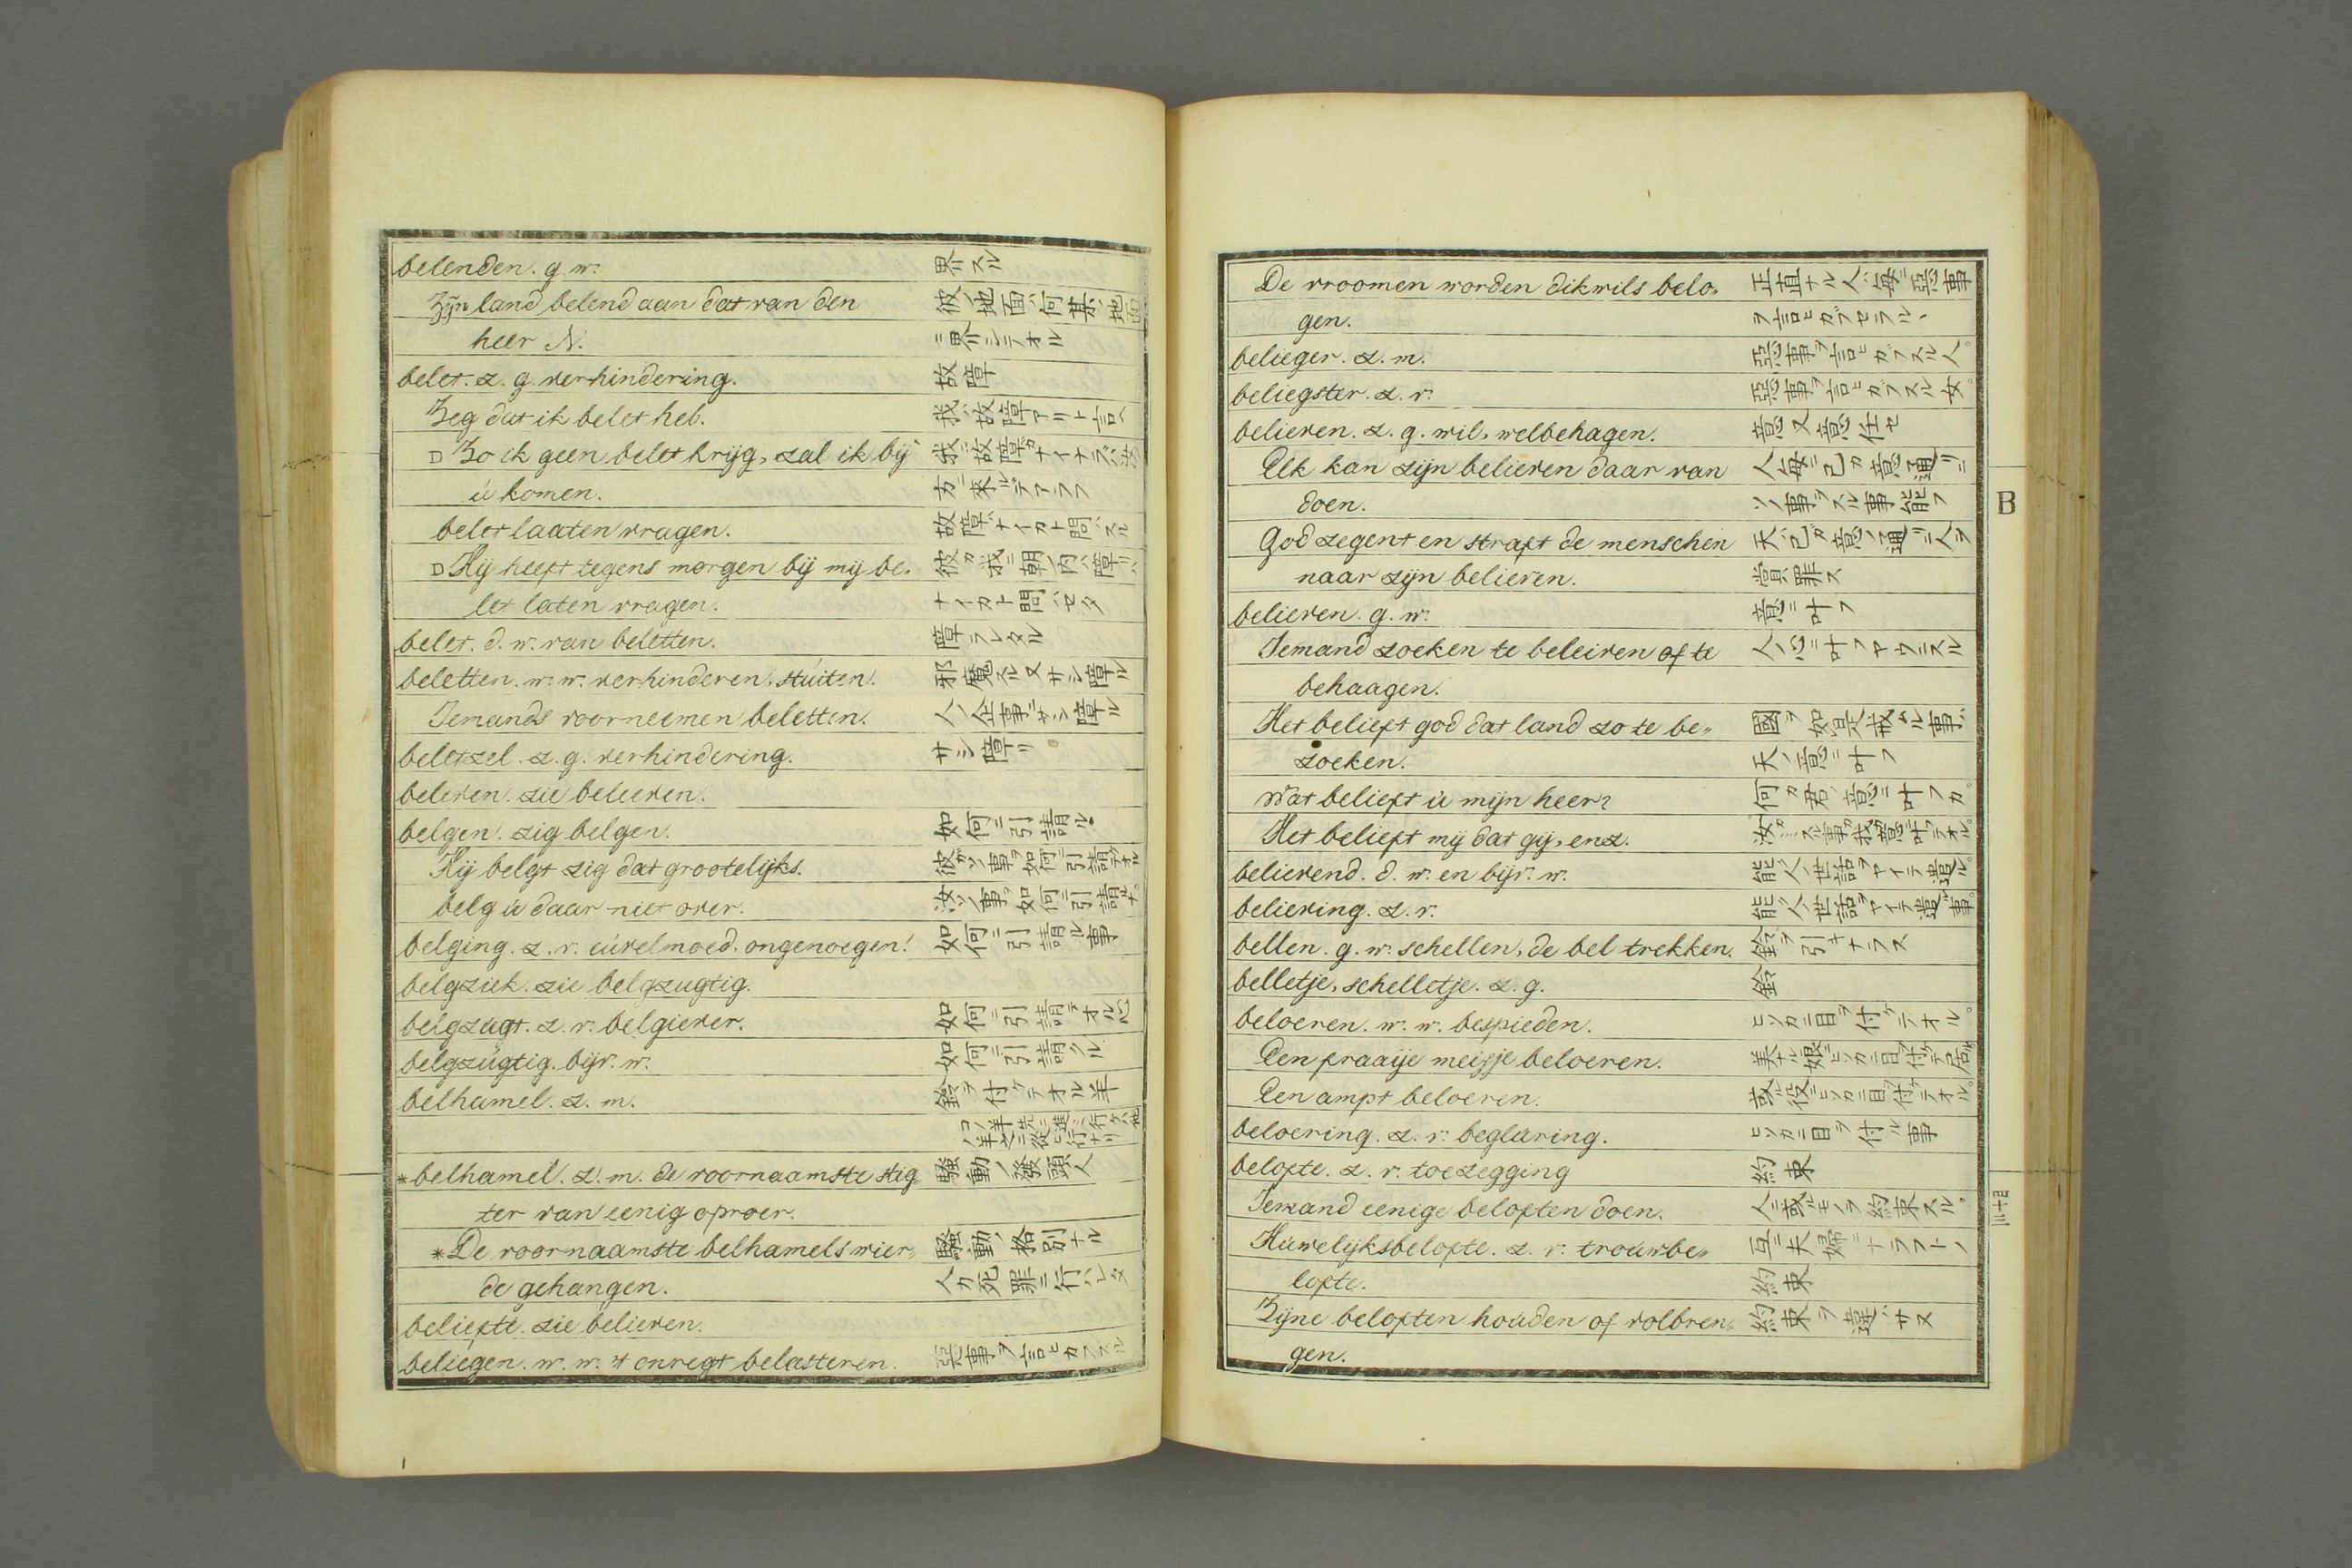 belenden. g w. 界スル
Zijn land belend aan dat van den 彼ノ地面ハ何某ノ地面
heer N. ニ界シテオル
belet. z. g. verhindering. 故障
Zeg dat ik belet heb. 我ハ故障アリト言ヘ
□ Zo ik geen belet krijg, zal ik bij 我ハ故障ガナイナラバ汝ノ
ú komen. 方ニ來ルデアラフ
belet laaten vragen. 故障ハナイカト問ハスル
□ Hij heeft tegens morgen bij mij be, 彼ガ我ニ朝ノ内ハ障リハ
let laten vragen. ナイカト問ハセタ
belet. d. w. van beletten. 障ラレタル
beletten. w. w. verhinderen, stúiten. 邪魔スル又サシ障ル
Iemands voorneemen beletten. 人ノ企事ニサシ障ル
beletzel. z. g. verhindering. サシ障リ
beleven. zie beleeven.
belgen. zig belgen. 如何ニ引請ル
Hij belgt zig dat grootelijks. 彼ガソノ事ヲ如何ニ引請テオル
belg ú daar niet over. 汝ソノ事ヲ如何ニ引請ルナ
belging. z. v. eúvelmoed. ongenoegen. 如何ニ引請ル事
belgziek. zie belgzugtig.
belgzúgt. z. v. belgiever. 如何ニ引請テオル心
belgzúgtig. bijv. w. 如何ニ引請タル
belhamel. z. m. 鈴ヲ付ケテオル羊
コノ羊先ニ進ミ行ケバ他
ノ羊之ニ從ヒ行ナリ
*belhamel. z. m. de voornaamste stig, 騷動ノ發頭人
ter van eenig oproer.
*De voornaamste belhamels wier, 騷動ノ格別ナル
de gehangen. 人ガ死罪ニ行ハレタ
beliefte. zie believen.
beliegen. w. w. 't onregt belasteren. 惡事ヲ言ヒカブスル
De vroomen worden dikwils belo, 正直ナル人ハ毎ニ惡事
gen. ヲ言ヒガブセラルヽ
belieger. z. m. 惡事ヲ言ヒガブスル人。
beliegster. z. v. 惡事ヲ言ヒガブスル女。
believen. z. g. wil, welbehagen. 意又意任セ
Elk kan zijn believen daar van 人毎ニ己ガ意ノ通リニ
doen. ソノ事ヲスル事能フ
B
God zegent en straft de menschen 天ハ己ガ意ノ通リニ人ヲ
naar zijn believen. 賞罪ス
believen. g. w. 意ニ叶フ
Iemand zoeken te beleiven of te 人ノ心ニ叶フヤウニスル
behaagen.
Het belieft god dat land zo te be, 國ヲ如是戒ムル事ハ
zoeken. 天ノ意ニ叶フ
Wat belieft ú mijn heer? 何ガ君ノ意ニ叶フカ。
Het belieft mij dat gij, enz. 汝ガスル事ガ我意ニ叶フテオル。
believend. d. w. en bijv. w. 能ク人ノ世話ヲヤイテ遣ル。
believing. z. v. 能ク人ノ世話ヲヤイテ遣ル事。
bellen. g. w. schellen, de bel trekken. 鈴ヲ引キナラス
belletje, schelletje. z. g. 鈴
beloeren. w. w. bespieden. ヒソカニ目ヲ付ケテオル。
Een fraaije meisje beloeren. 美ナル娘ニヒソカニ目ヲ付ケテ居ル
Een ampt beloeren. 或ル役ニヒソカニ目ヲ付ケテオル。
beloering. z. v. begluring. ヒソカニ目ヲ付ル事
belofte. z. v. toezegging 約束
Iemand eenige beloften doen. 人ニ或ルモノヲ約束スル。
Húwelijksbelofte. z. v. troúwbe, 互ニ夫婦ニナラフトノ
lofte. 約束
Zijne beloften hoúden of volbren, 約束ヲ違ハサヌ
gen.